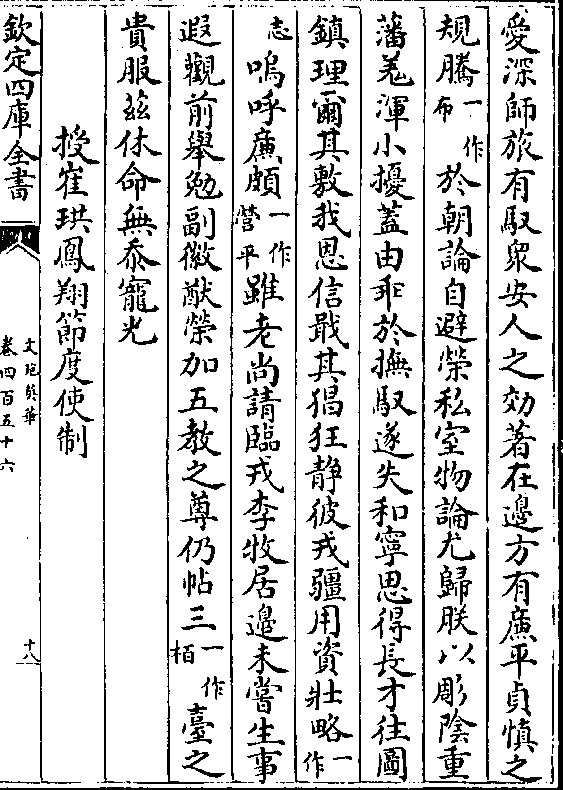 愛深師旅有馭衆安人之効著在邊方有廉平貞慎之
規騰一作布於朝論自避榮私室物論尤歸朕以彫陰重
藩羗渾小擾蓋由乖於撫馭遂失和寧思得長才往圖
鎮理爾其敷我恩信戢其猖狂靜彼戎疆用資壯略一作
志嗚呼廉頗一作營平雖老尚請臨戎李牧居邊未嘗生事
遐觀前舉勉副徽猷榮加五教之尊仍帖三一作栢臺之
貴服茲休命無忝寵光
授崔珙鳳翔節度使制
欽定四庫全書
文苑英華
卷四百五十六
十八